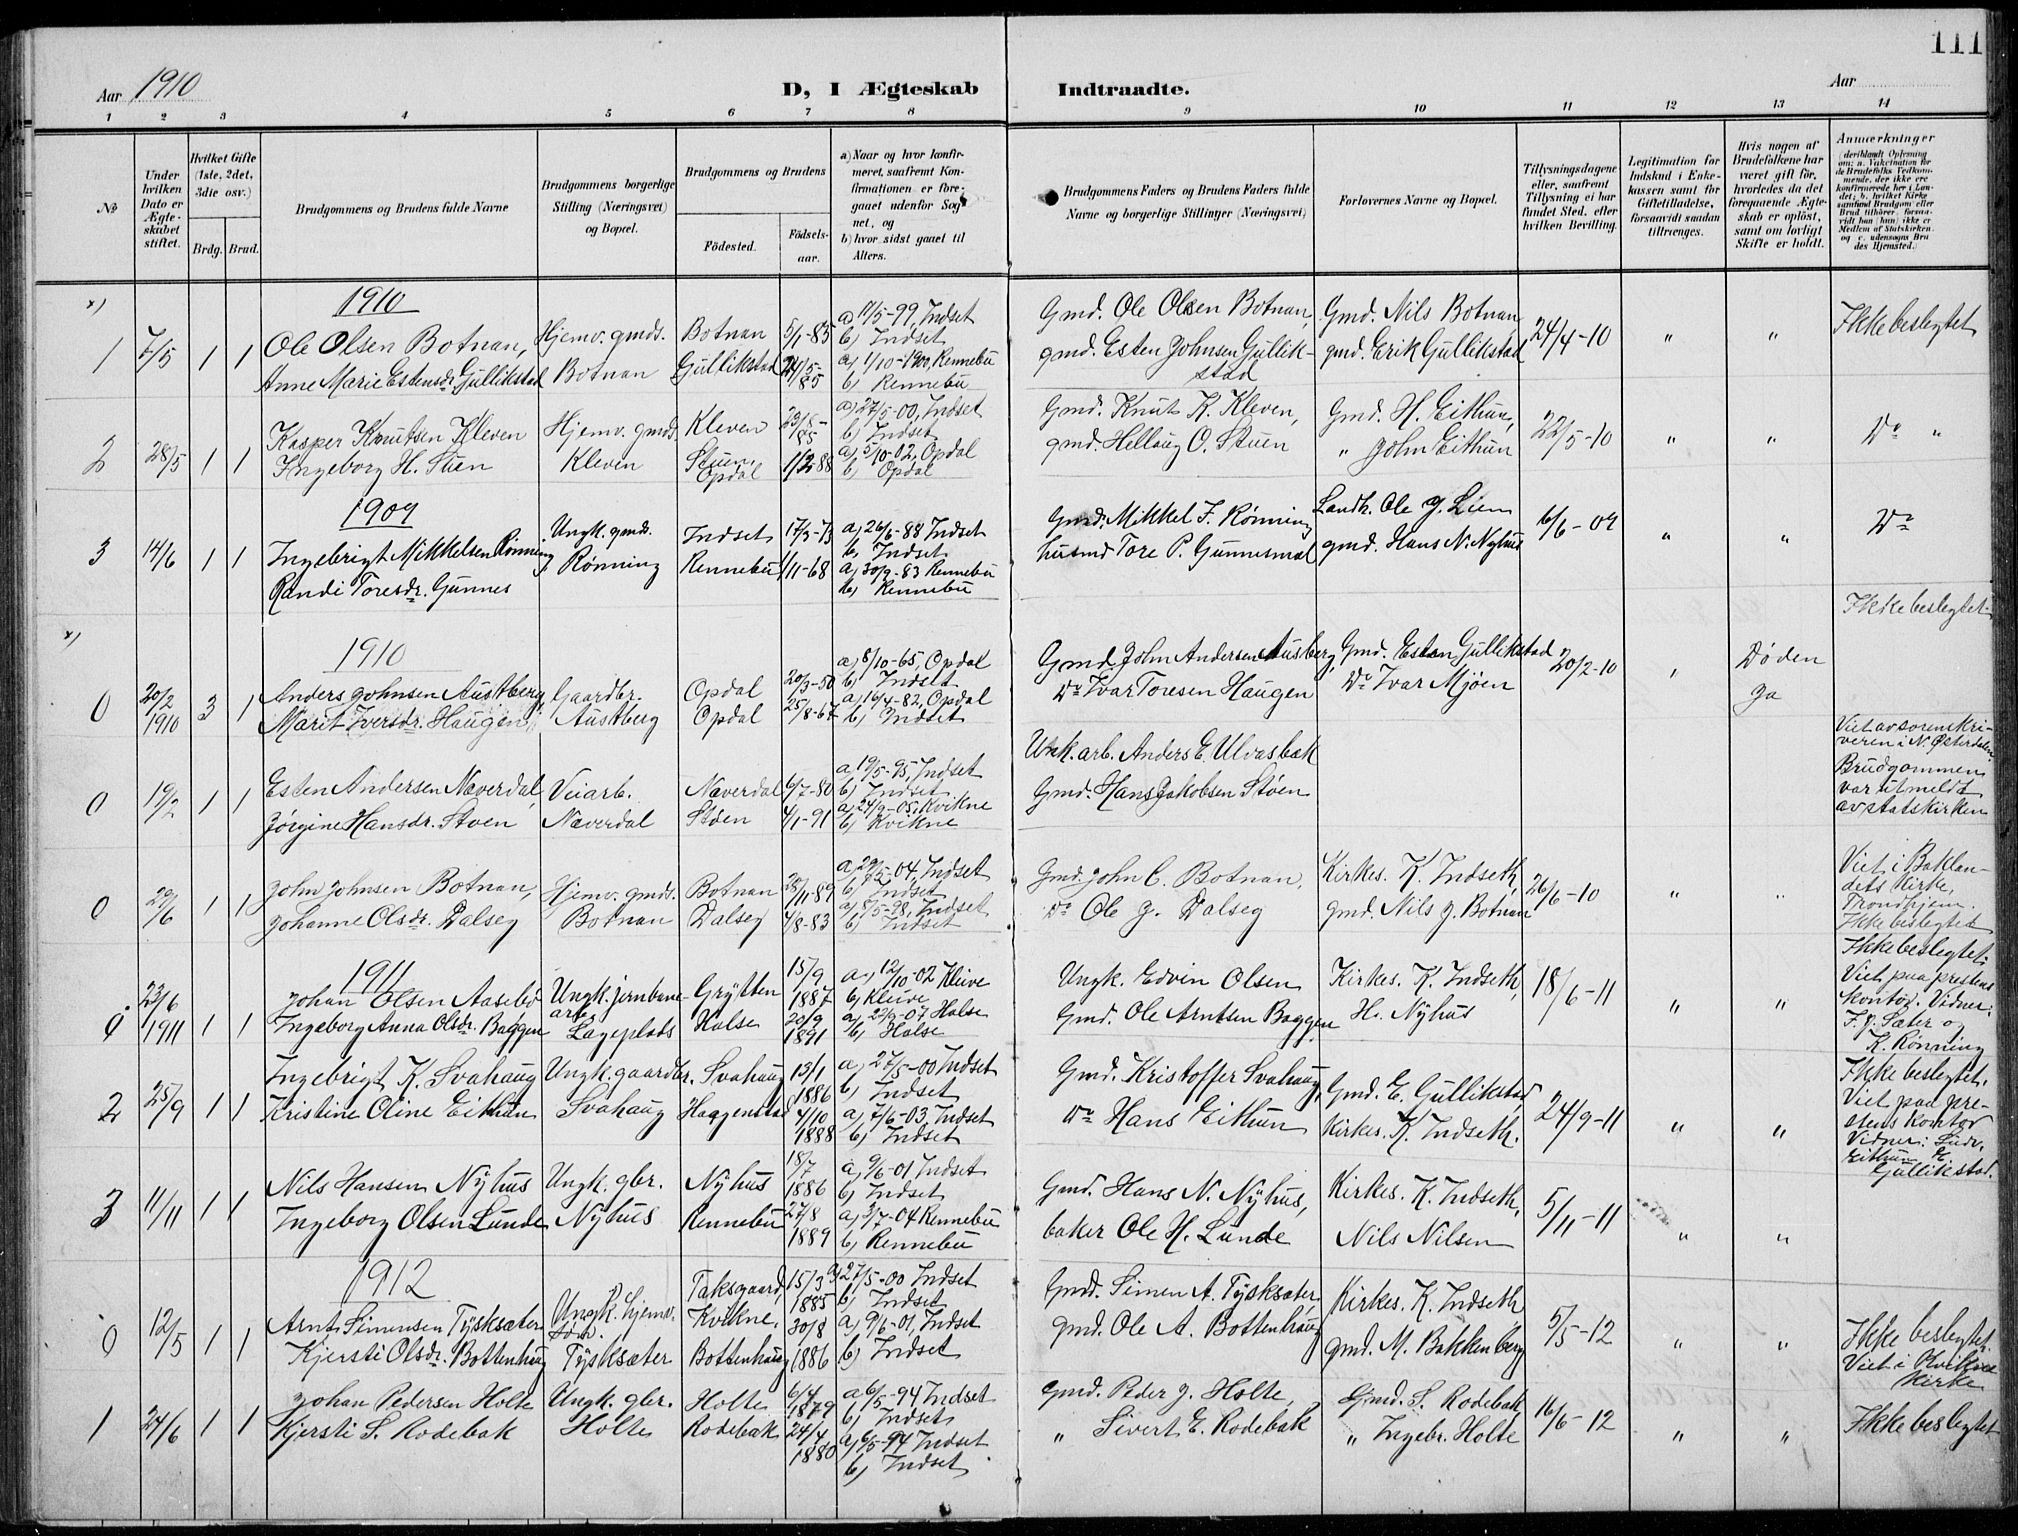 111
Aar 1910
D, I Ægteskab Indtraadte.
Aar
1 2 3 4 5 6 7 8 9 10 11 12 13 14
№
Under hvilken Dato er Ægteskabet stiftet.
Hvilket Gifte (1ste, 2det, 3die osv.)
Brdg. Brud.
Brudgommens og Brudens fulde Navne
Brudgommens borgerlige Stilling (Næringsvei) og Bopæl.
Brudgommens og Brudens
Födested. Födselsaar.
a) Naar og hvor konfirmeret, saafremt Konfirmationen er foregaaet udenfor Sognet, og
b) hvor sidst gaaet til Alters.
Brudgommens Faders og Brudens Faders fulde Navne og borgerlige Stillinger (Næringsvei)
Forlovernes Navne og Bopæl.
Tillysningsdagene eller, saafremt Tillysning ei har fundet Sted, efter hvilken Bevilling.
Legitimation for Indskud i Enkekassen samt for Giftetilladelse, forsaavidt saadan tiltrænges.
Hvis nogen af Brudefolkene har været gift för, hvorledes da det foregaaende Ægteskab er oplöst, samt om lovligt Skifte er holdt.
Anmærkninger (deriblandt Oplysning om: a. Vakcination for de Brudefolks Vedkommende, der ikke ere konfirmerede her i Landet; b. hvilket Kirkesamfund Brudgom eller Brud tilhörer, forsaavidt han (hun) ikke er Medlem af Statskirken, og c. udensogns Brudes Hjemsted.)
x)
1910
1 7/5 1 1 Ole Olsen Botnan, Hjemv. gmds. Botnan 5/1-83 a) 11/5-99, Indset
b) Indset
Anne Marie Estensdr. Gullikstad Botnan Gullikstad 24/5-85 a) 1/10-1900, Rennebu
b) Rennebu
Gmd. Ole Olsen Botnan, Gmd. Nils Botnan, 24/4-10 " " Ikke beslegtet
gmd. Esten Johnsen Gullikstad gmd. Erik Gullikstad
2 28/5 1 1 Kasper Knutsen Kleven Hjemv. gmds. Kleven 23/8-85 a) 27/5-00, Indset
b) Indset
Ingeborg H. Stuen Kleven Stuen, Opdal 1/2 88 a) 5/10-02, Opdal
b) Opdal
Gmd. Knut K. Kleven, Gmd. H. Eithun, 22/5-10 " " Do "
gmd. Hellaug O. Stuen " John Eithun
1909
3 14/6 1 1 Ingebrigt Mikkelsen Rønning Ungk. gmds. Indset 17/3-73 a) 26/6-88 Indset
b) Indset
Randi Toresdr. Gunnes Rønning Rennebu 1/11-68 a) 30/9-83 Rennebu
b) Rennebu
Gmd. Mikkel F. Rønning Landh. Ole J. Lien 6/6-09 " " Do
husmd Tore P. Gunnesmal gmd. Hans N. Nyhus
x)
1910
0 20/2 1910 3 1 Anders Johnsen Austberg, Gaardbr. Opdal 20/3-50 a) 8/10-65, Opdal
b) Indset
Marit Iversdr. Haugen, Austberg Opdal 25/8-67 a) 16/4-82, Opdal
b) Indset
Gmd. John Andersen Ausberg, Gmd. Esten Gullikstad 20/2-10 " Døden Ikke beslegtet
Do Ivar Toresen Haugen Do Ivar Mjøen Ja
0 19/2 1 1 Esten Andersen Næverdal, Veiarb. Næverdal 6/7-80 a) 19/5-95, Indset
b) Indset
Jørgine Hansdr. Støen Næverdal Støen 4/1-91 a) 24/9-05, Kvikne
b) Kvikne
Unk. arb. Anders E. Ulvasbak
Gmd. Hans Jakobsen Støen
Viet av sorenskriveren i N. Østerdalen. Brudgommen var utmeldt av statskirken
0 29/6 1 1 John Johnsen Botnan, Hjemv. gmds. Botnan 28/11-89 a) 29/5-04, Indset
b) Indset
Johanne Olsdr. Dalseg Botnan Dalseg 4/8-83 a) 8/5-98, Indset
b) Indset
Gmd. John C. Botnan, Kirkes. K. Indseth, 26/6-10 " "
Do Ole J. Dalseg gmd. Nils J. Botnan
Viet i Baklandets Kirke, Trondhjem. Ikke beslegtet
1911
0 23/6 1911 1 1 Johan Olsen Aasebø Ungk. jernbanearb. Grytten 15/9 1887 a) 12/10-02 Kleive
b) Kleive
Ingeborg Anna Olsdr. Baggen Lageplads Halse 20/9 1891 a) 22/9-07 Halse
b) Halse
Ungk. Edvin Olsen Kirkes. K. Indseth, 18/6-11 " "
Gmd. Ole Arntsen Baggen H. Nyhus
Ikke beslegtet. Viet paa prestens kontor. Vidner: F. J. Sæter og K. Rønning
2 25/9 1 1 Ingebrigt K. Svahaug Ungk. gaardbr. Svahaug 13/1 1886 a) 27/5-00 Indset
b) Indset
Kristine Oline Eithun Svahaug Haggenstad 4/10 1888 a) 7/6-03, Indset
b) Indset
Gmd. Kristoffer Svahaug, Gmd. E. Gullikstad, 24/9-11 " "
Do Hans Eithun Kirkes. K. Indseth.
Ikke beslegtet. Viet paa prestens kontor Vidner: Sivr. Eithun E. Gullikstad.
3 11/11 1 1 Nils Hansen Nyhus Ungk. gbr. Nyhus 18/7 1886 a) 9/6-01, Indset
b) Indset
Ingeborg Olsen Lunde Nyhus Rennebu 27/8 1889 a) 3/7-04 Rennebu
b) Rennebu
Gmd. Hans N. Nyhus, Kirkes. K. Indseth, 5/11-11 " "
baker Ole H. Lunde Nils Nilsen
1912
0 12/5 1 1 Arnt Simensen Tysksæter Ungk. hjemv. søn. Taksgaard, Kvikne. 15/3 1885 a) 27/5-00 Indset
b) Indset
Kjersti Olsdr. Bottenhaug Tysksæter Bottenhaug 30/8 1886 a) 9/6-01, Indset
b) Indset
Gmd. Simen A. Tysksæter, Kirkes. K. Indseth 5/5-12 " " Ikke beslegtet.
gmd. Ole A. Bottenhaug gmd. M. Bakkenberg Viet i Kvikne Kirke
1 24/6 1 1 Johan Pedersen Holte Ungk. gbr. Holte 6/4 1879 a) 6/5-94 Indset
b) Indset
Kjersti S. Rodebak Holte Rodebak 24/4 1880 a) 6/5-94 Indset
b) Indset
Gmd. Peder J. Holte, Gmd. S. Rodebak, 16/6-12 " " Ikke beslegtet
" Sivert E. Rodebak " Ingebr. Holte